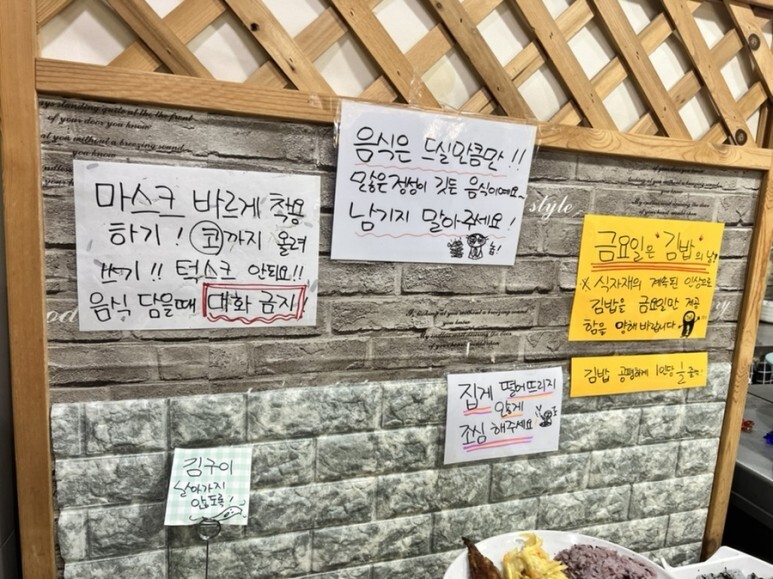 마스크 바르게 착용
하기! 코까지 올려
쓰기!! 턱스크 안되요!!
음식 담을때 대화 금지!
음식은 드실만큼만!!
많은 정성이 깃든 음식이예요~
남기지 말아주세요!
금요일은 "김밥"의 날!
※ 식자재의 계속된 인상으로
김밥은 금요일만 제공
함을 양해바랍니다
김밥 공평하게 1인당
집게 떨어뜨리지
않게
조심 해주세요
김구이
날아가지
않도록!
of your door you know
at you without a breezing sound
you know
style